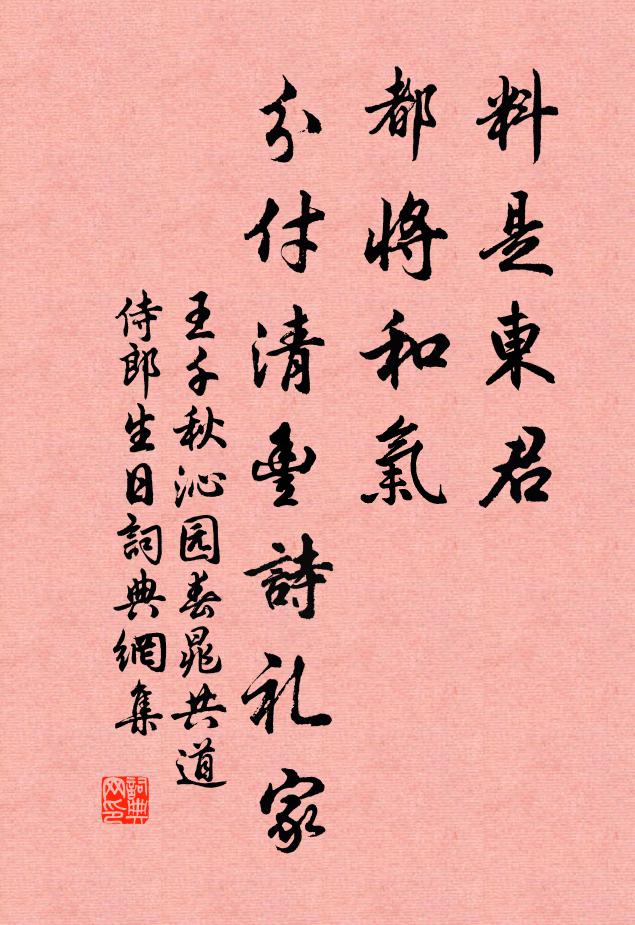 料是東君
都將和氣
分付清豐詩礼家
王千秋沁园春晁共道
侍郎生日詞典網集
詞典网印